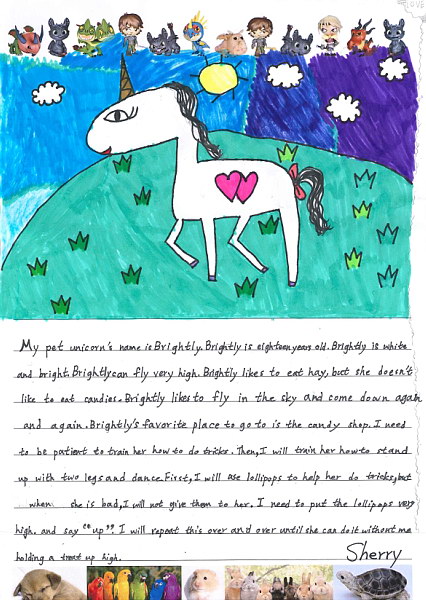 LOVE
My pet unicorn's name is Brightly. Brightly is eighteen years old. Brightly is white
and bright. Brightly can fly very high. Brightly likes to eat hay, but she doesn't
like to eat candies. Brightly likes to fly in the sky and come down again
and again. Brightly's favorite place to go to is the candy shop. I need
to be patient to train her how to do tricks. Then, I will train her how to stand
up with two legs and dance. First, I will use lollipops to help her do tricks, but
when she is bad, I will not give them to her. I need to put the lollipops very
high. and say "up". I will repeat this over and over until she can do it without me
holding a treat up high.
Sherry